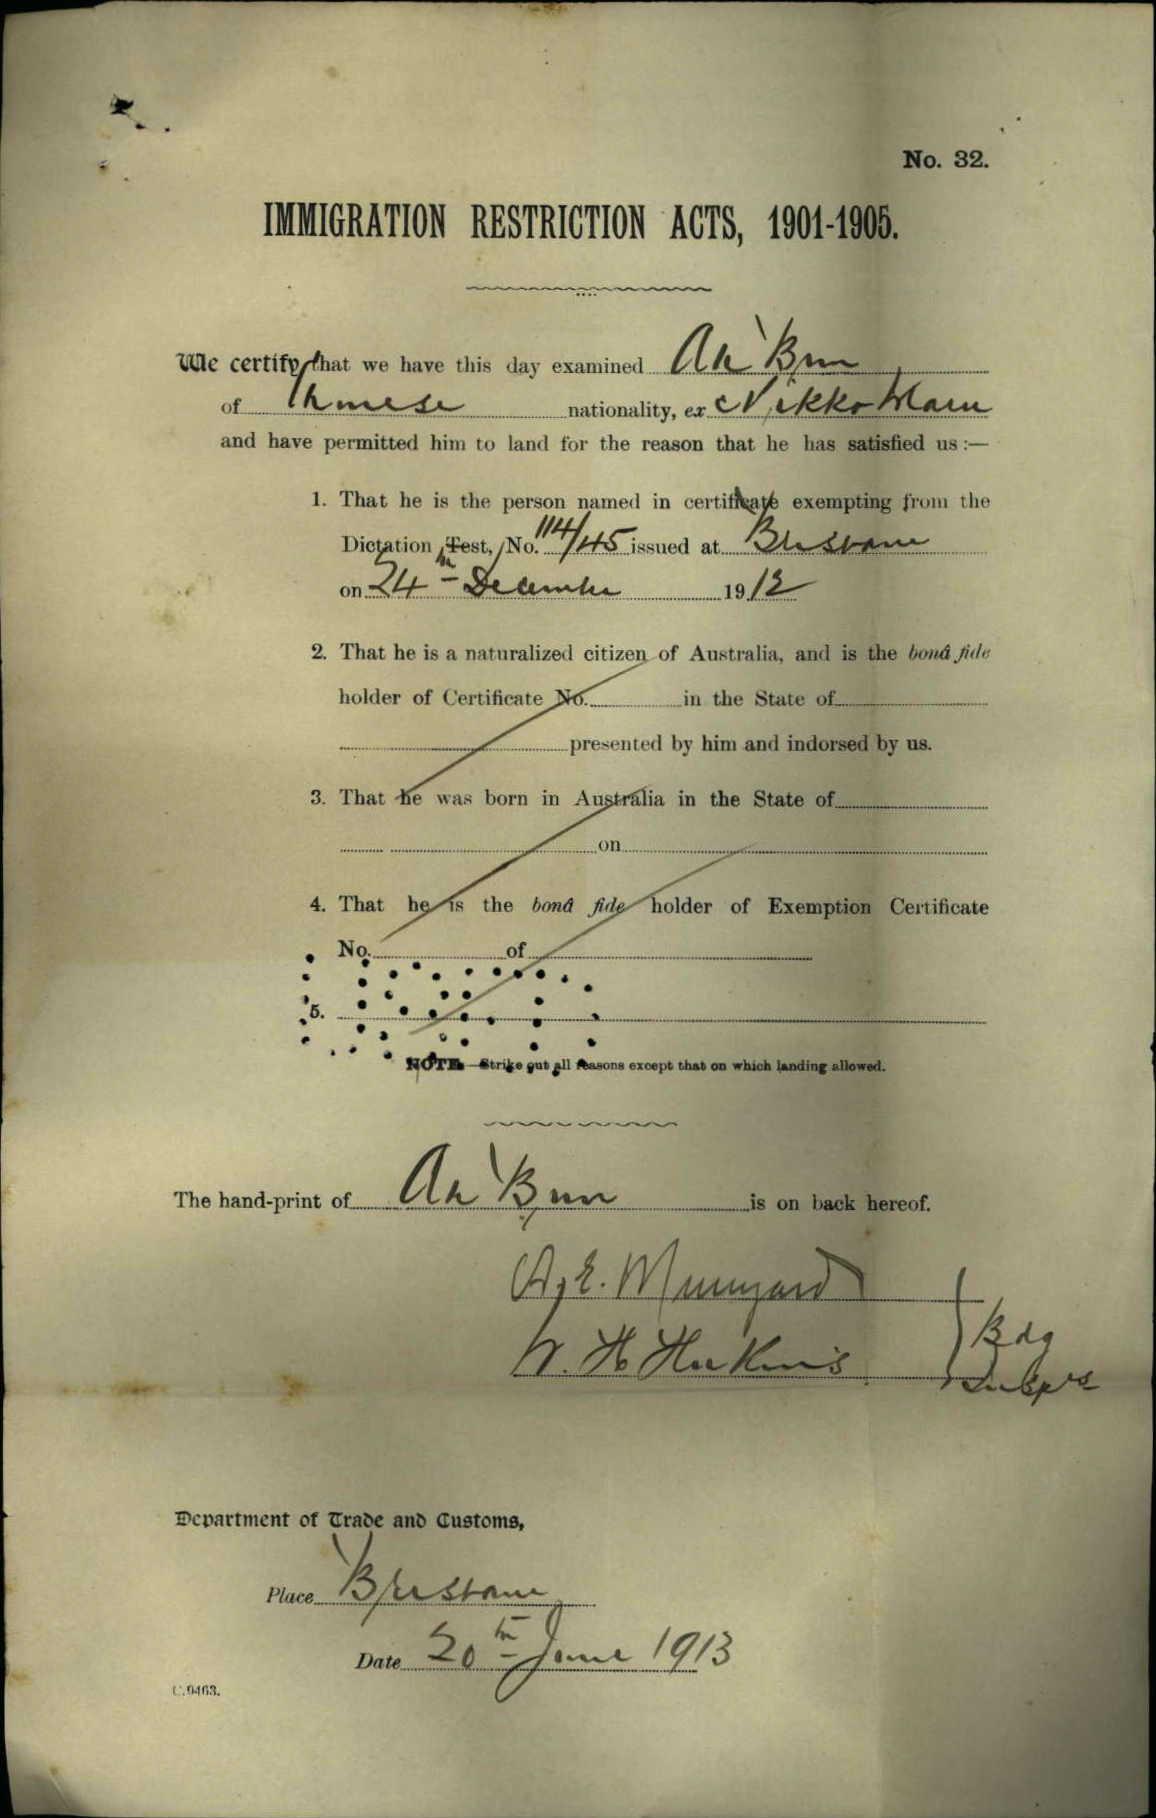 No. 32.
IMMIGRATION RESTRICTION ACTS, 1901-1905.
We certify that we have this day examined Ah Bun
of Chinese nationality, ex Nikko Maru
and have permitted him to land for the reason that he has satisfied us :—
1. That he is the person named in certificate exempting from the
Dictation Test, No. 114/45 issued at Brisbane
on 24th December 1912
2. That he is a naturalized citizen of Australia, and is the bonâ fide
holder of Certificate No. in the State of
presented by him and indorsed by us.
3. That he was born in Australia in the State of
on
4. That he is the bonâ fide holder of Exemption Certificate
No. of
5.
NOTE.—Strike out all reasons except that on which landing allowed.
The hand-print of Ah Bun is on back hereof.
A. E.
W. H. Bdg
Insprs
Department of Trade and Customs,
Place Brisbane
Date 20th June 1913
C.9463.